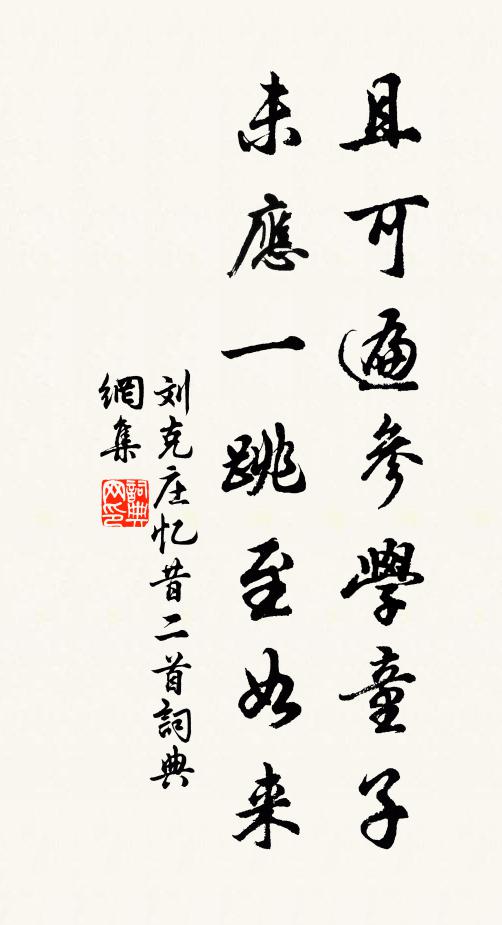 且可遍參學童子
未應一跳至如来
刘克庄忆昔二首詞典
網集
詞典网印